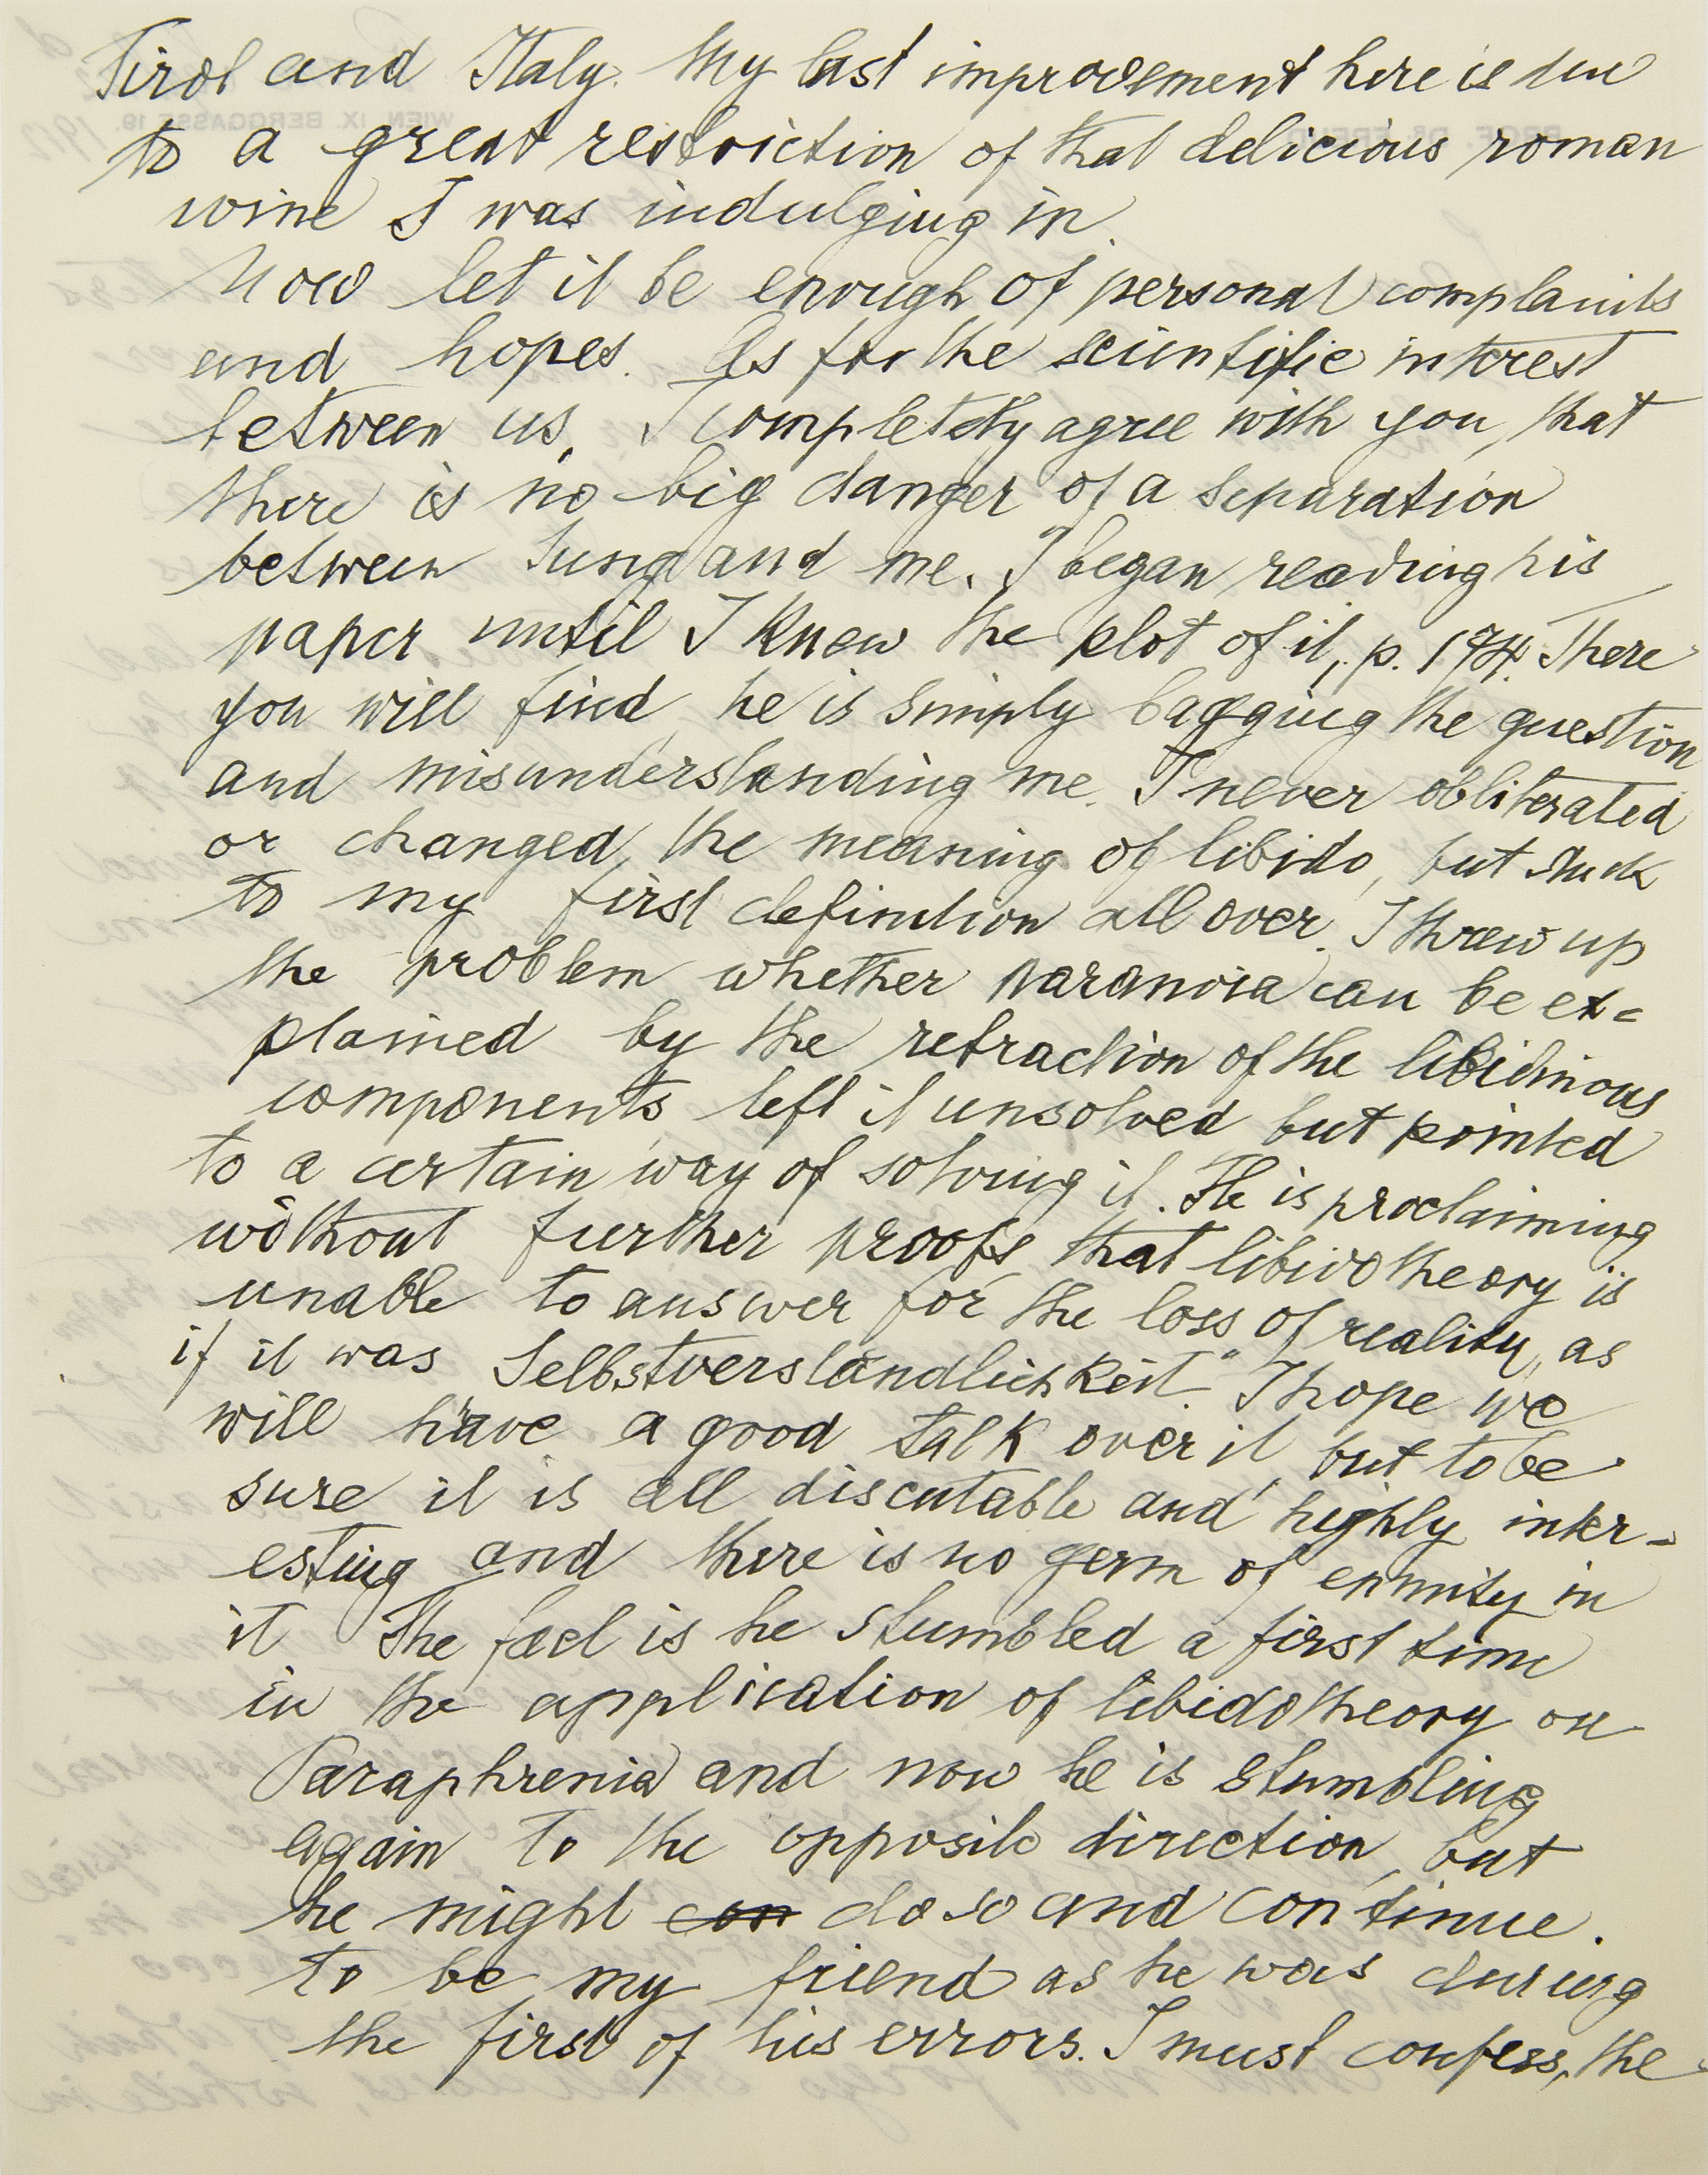 Tirol and Italy. My last improvement here is due
to a great restriction of that delicious roman
wine I was indulging in.
Now let it be enough of personal complaints
and hopes. As for the scientific interest
between us, I completely agree with you, that
there is no big danger of a separation
between Jung and me. I began reading his
paper until I knew the plot of it, p. 174. There
you will find, he is simply bagging the question
and misunderstanding me. I never obliterated
or changed the meaning of libido, but stuck
to my first definition all over. I threw up
the problem whether paranoia can be ex=
plained by the retraction of the libidinous
components, left it unsolved but pointed
to a certain way of solving it. He is proclaiming
without further proofs that libidotheory is
unable to answer for the loss of reality, as
if it was „Selbstverständlichkeit“ I hope we
will have a good talk over it, but to be
sure it is all discutable and highly inter-
esting and there is no germ of enmity in
it The fact is he stumbled a first time
in the application of libidotheory on
Paraphrenia and now he is stumbling
again to the opposite direction, but
he might con do so and continue.
to be my friend as he was during
the first of his errors. I must confess, the
WIEN, IX. BERGGASSE 19.
PROF. DR. FREUD